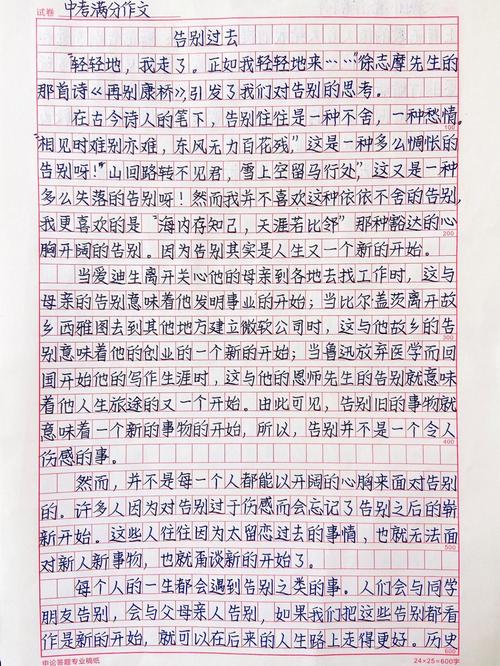 试卷 中考满分作文
告别过去
"轻轻地，我走了。正如我轻轻地来……"徐志摩先生的
那首诗《再别康桥》，引发了我们对告别的思考。
在古今诗人的笔下，告别往往是一种不舍，一种愁情。
100
"相见时难别亦难，东风无力百花残"，这是一种多么惆怅的
告别呀！"山回路转不见君，雪上空留马行处"，这又是一种
多么失落的告别呀！然而我并不喜欢这种依依不舍的告别，
我更喜欢的是"海内存知己，天涯若比邻"那种豁达的心
200
胸开阔的告别。因为告别其实是人生又一个新的开始。
当爱迪生离开关心他的母亲到各地去找工作时，这与
母亲的告别意味着他发明事业的开始；当比尔盖茨离开故
乡西雅图去到其他地方建立微软公司时，这与他故乡的告
别意味着他的创业的一个新的开始；当鲁迅放弃医学而回
国开始他的写作生涯时，这与他的恩师先生的告别就意味
着他人生旅途的又一个开始。由此可见，告别旧的事物就
意味着一个新的事物的开始，所以，告别并不是一个令人
400
伤感的事。
然而，并不是每一个人都能以开阔的心胸来面对告别
的。许多人因为对告别过于伤感而会忘记了告别之后的崭
新开始。这些人往往因为太留恋过去的事情，也就无法面
500
对新人新事物，也就甭谈新的开始了。
每个人的一生都会遇到告别之类的事。人们会与同学
朋友告别，会与父母亲人告别，如果我们把这些告别都看
作是新的开始，就可以在后来的人生路上走得更好。历史
600
申论答题专业稿纸 24×25=600字